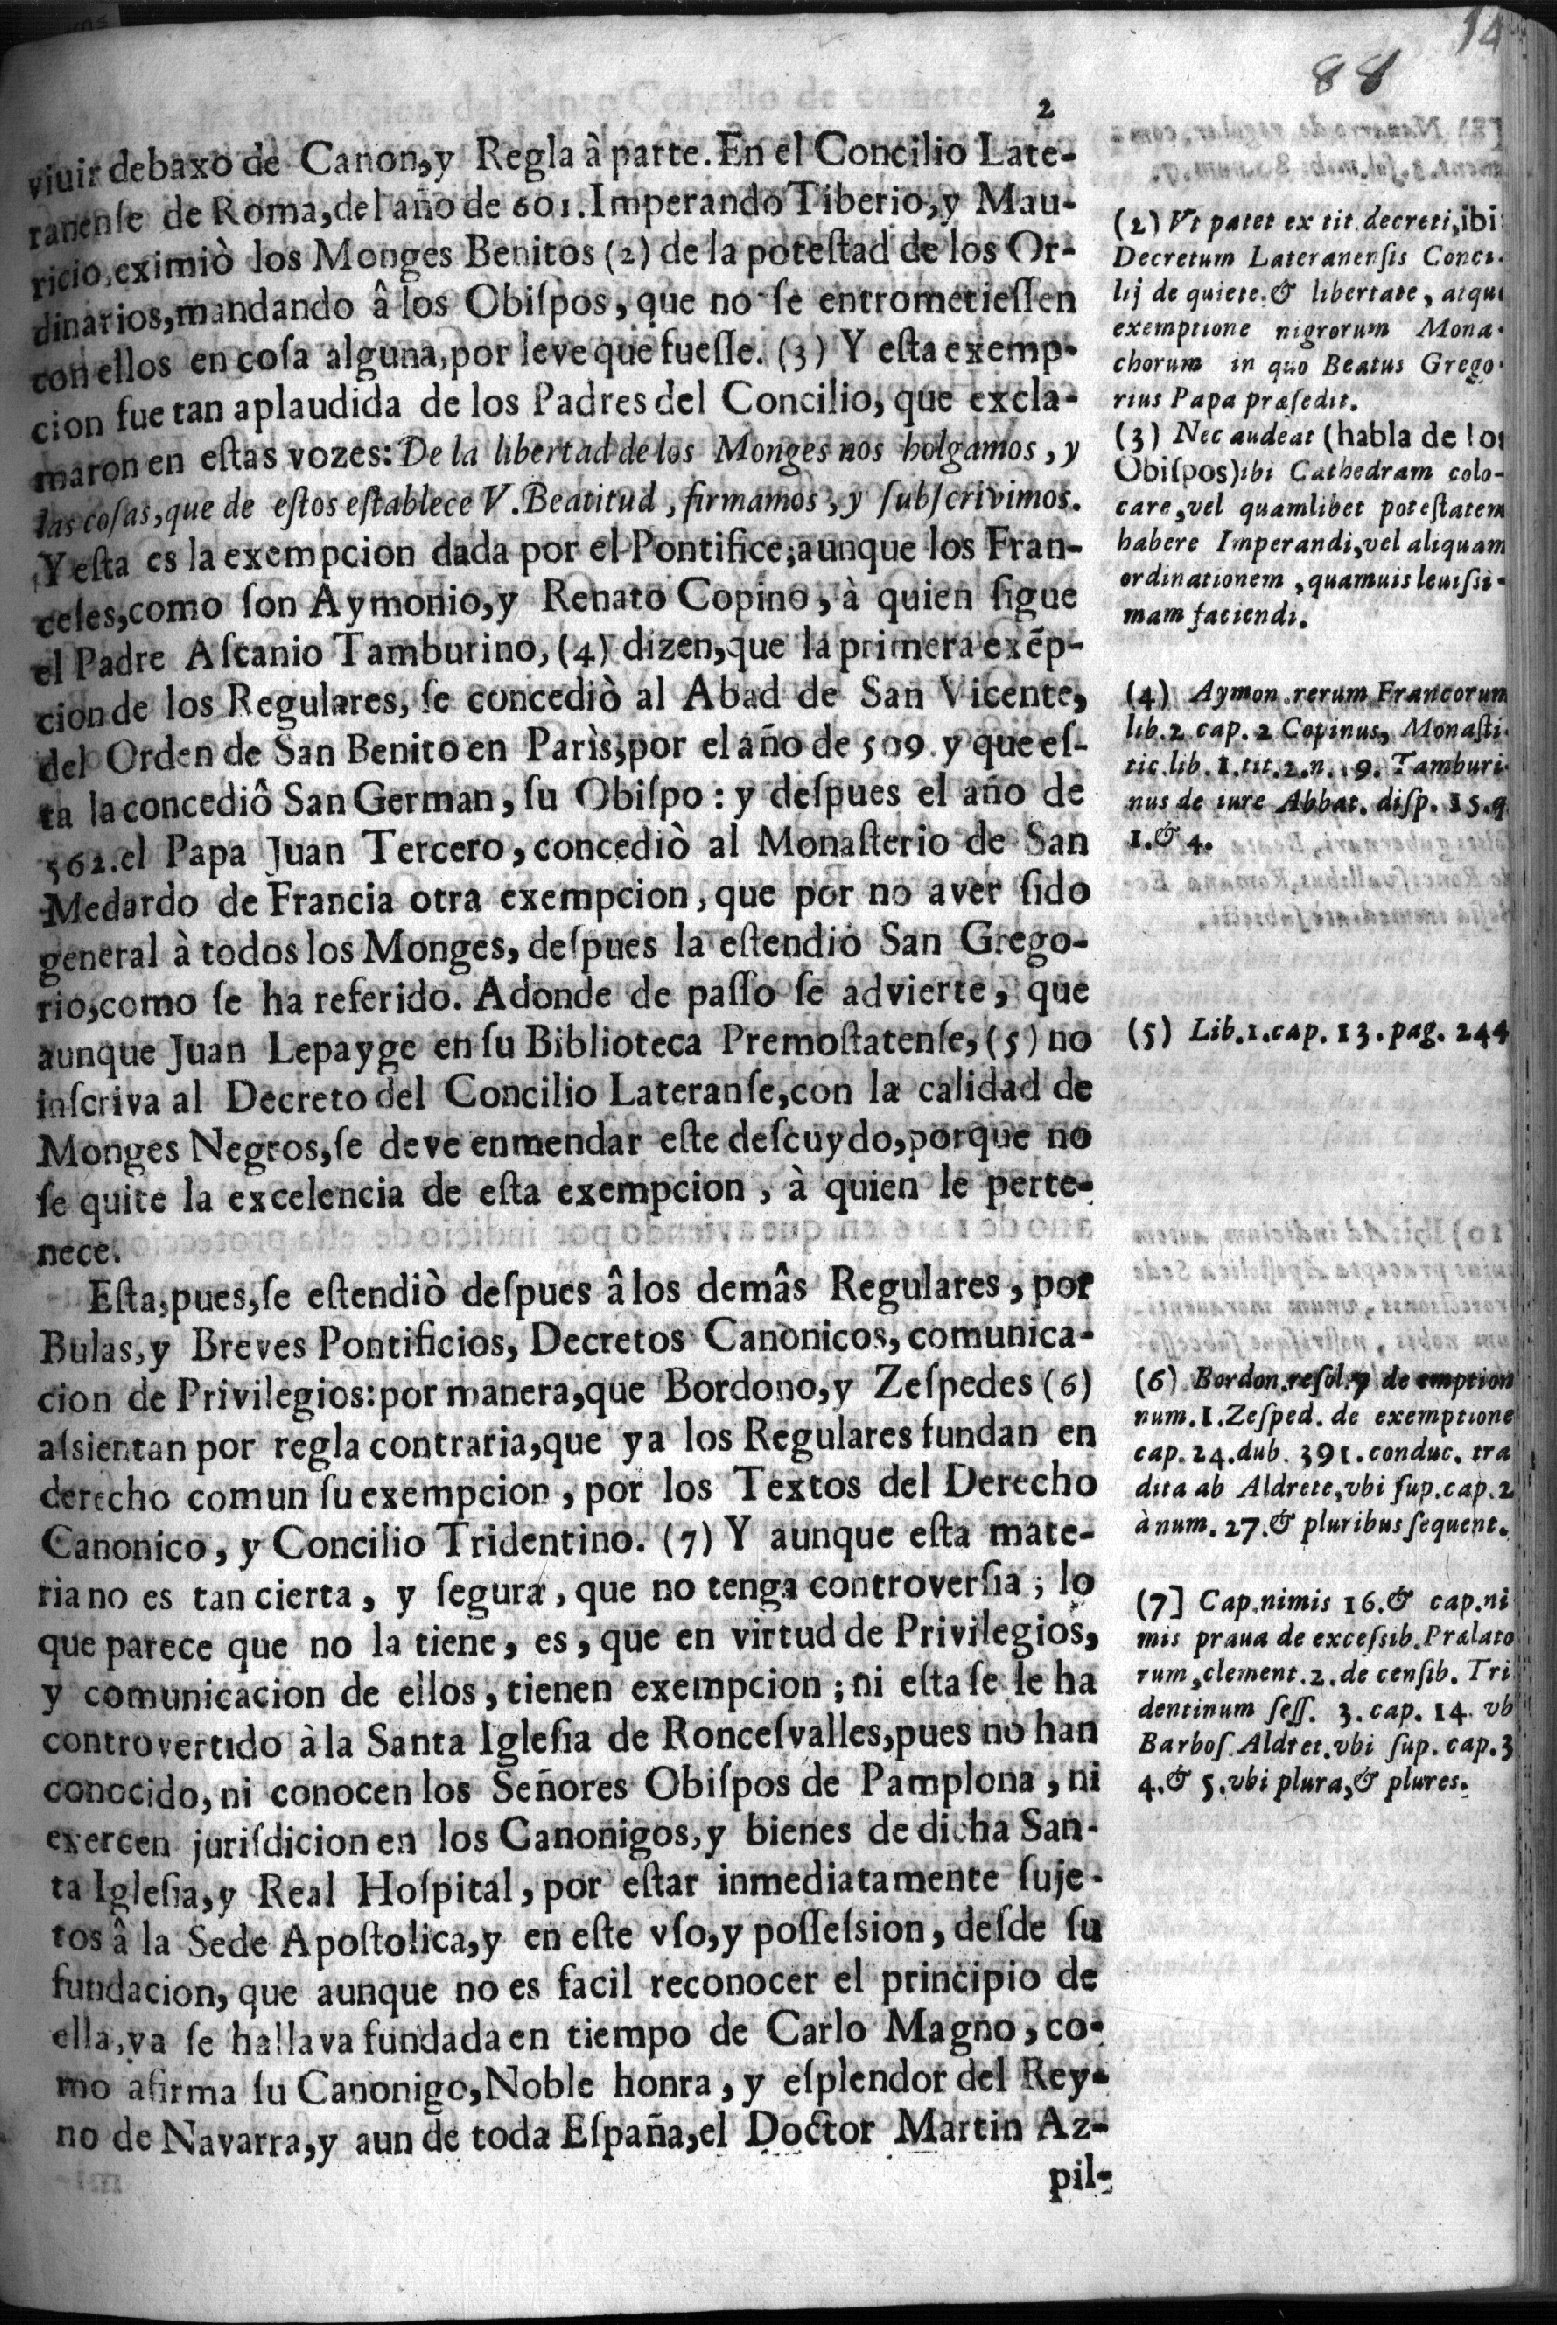 14
88
2
viuir debaxo de Canon,y Regla à parte. En el Concilio Late-
ranenſe de Roma,del año de 601. Imperando Tiberio,y Mau-
ricio,eximiò los Monges Benitos (2) de la poteſtad de los Or-
dinarios,mandando â los Obiſpos, que no ſe entrometieſſen
con ellos en coſa alguna,por leve que fueſſe. (3) Y eſta exemp-
cion fue tan aplaudida de los Padres del Concilio, que excla-
maron en eſtas vozes: De la libertad de los Monges nos holgamos, y
las coſas, que de eſtos eſtablece V. Beatitud, firmamos, y ſubſcrivimos.
Y eſta es la exempcion dada por el Pontifice; aunque los Fran-
ceſes,como ſon Aymonio,y Renato Copino, à quien ſigue
el Padre Aſcanio Tamburino, (4) dizen,que la primera exẽp-
cion de los Regulares, ſe concediò al Abad de San Vicente,
del Orden de San Benito en Parìs,por el año de 509. y que eſ-
ta la concediô San German, ſu Obiſpo: y deſpues el año de
562. el Papa Juan Tercero, concediò al Monaſterio de San
Medardo de Francia otra exempcion, que por no aver ſido
general à todos los Monges, deſpues la eſtendiò San Grego-
rio,como ſe ha referido. Adonde de paſſo ſe advierte, que
aunque Juan Lepayge en ſu Biblioteca Premoſtatenſe, (5) no
inſcriva al Decreto del Concilio Lateranſe,con la calidad de
Monges Negros,ſe deve enmendar eſte deſcuydo,porque no
ſe quite la excelencia de eſta exempcion, à quien le perte-
nece.
Eſta,pues,ſe eſtendiò deſpues â los demâs Regulares, por
Bulas,y Breves Pontificios, Decretos Canonicos, comunica-
cion de Privilegios: por manera,que Bordono,y Zeſpedes (6)
aſsientan por regla contraria,que ya los Regulares fundan en
derecho comun ſu exempcion, por los Textos del Derecho
Canonico, y Concilio Tridentino. (7) Y aunque eſta mate-
ria no es tan cierta, y ſegura, que no tenga controverſia; lo
que parece que no la tiene, es, que en virtud de Privilegios,
y comunicacion de ellos, tienen exempcion; ni eſta ſe le ha
controvertido à la Santa Igleſia de Ronceſvalles,pues no han
conocido, ni conocen los Señores Obiſpos de Pamplona, ni
exercen juriſdicion en los Canonigos,y bienes de dicha San-
ta Igleſia,y Real Hoſpital, por eſtar inmediatamente ſuje-
tos â la Sede Apoſtolica,y en eſte vſo,y poſſeſsion, deſde ſu
fundacion, que aunque no es facil reconocer el principio de
ella,ya ſe hallava fundada en tiempo de Carlo Magno, co-
mo afirma ſu Canonigo,Noble honra, y eſplendor del Rey-
no de Navarra,y aun de toda Eſpaña,el Doctor Martin Az-
pil-
(2) Vt patet ex tit. decreti, ibi
Decretum Lateranenſis Conci-
lij de quiete. & libertate, atque
exemptione nigrorum Mona-
chorum in quo Beatus Grego-
rius Papa præſedit.
(3) Nec audeat (habla de los
Obiſpos) ibi Cathedram colo-
care, vel quamlibet poteſtatem
habere Imperandi, vel aliquam
ordinationem, quamuis leuiſsi-
mam faciendi.
(4) Aymon. rerum Francorum
lib. 2 cap. 2 Copinus, Monaſti-
tic. lib. 1. tit. 2. n. 19. Tamburi-
nus de iure Abbat. diſp. 15. q
1. & 4.
(5) Lib. 1. cap. 13. pag. 244
(6) Bordon. reſol. 7 de emption
num. 1. Zeſped. de exemptione
cap. 24. dub. 391. conduc. tra
dita ab Aldrete, vbi ſup. cap. 2
à num. 27. & pluribus ſequent.
(7] Cap. nimis 16. & cap. ni
mis praua de exceſsib. Prælato
rum, clement. 2. de cenſib. Tri
dentinum ſeſſ. 3. cap. 14. vb
Barboſ. Aldret. vbi ſup. cap. 3
4. & 5. vbi plura, & plures.